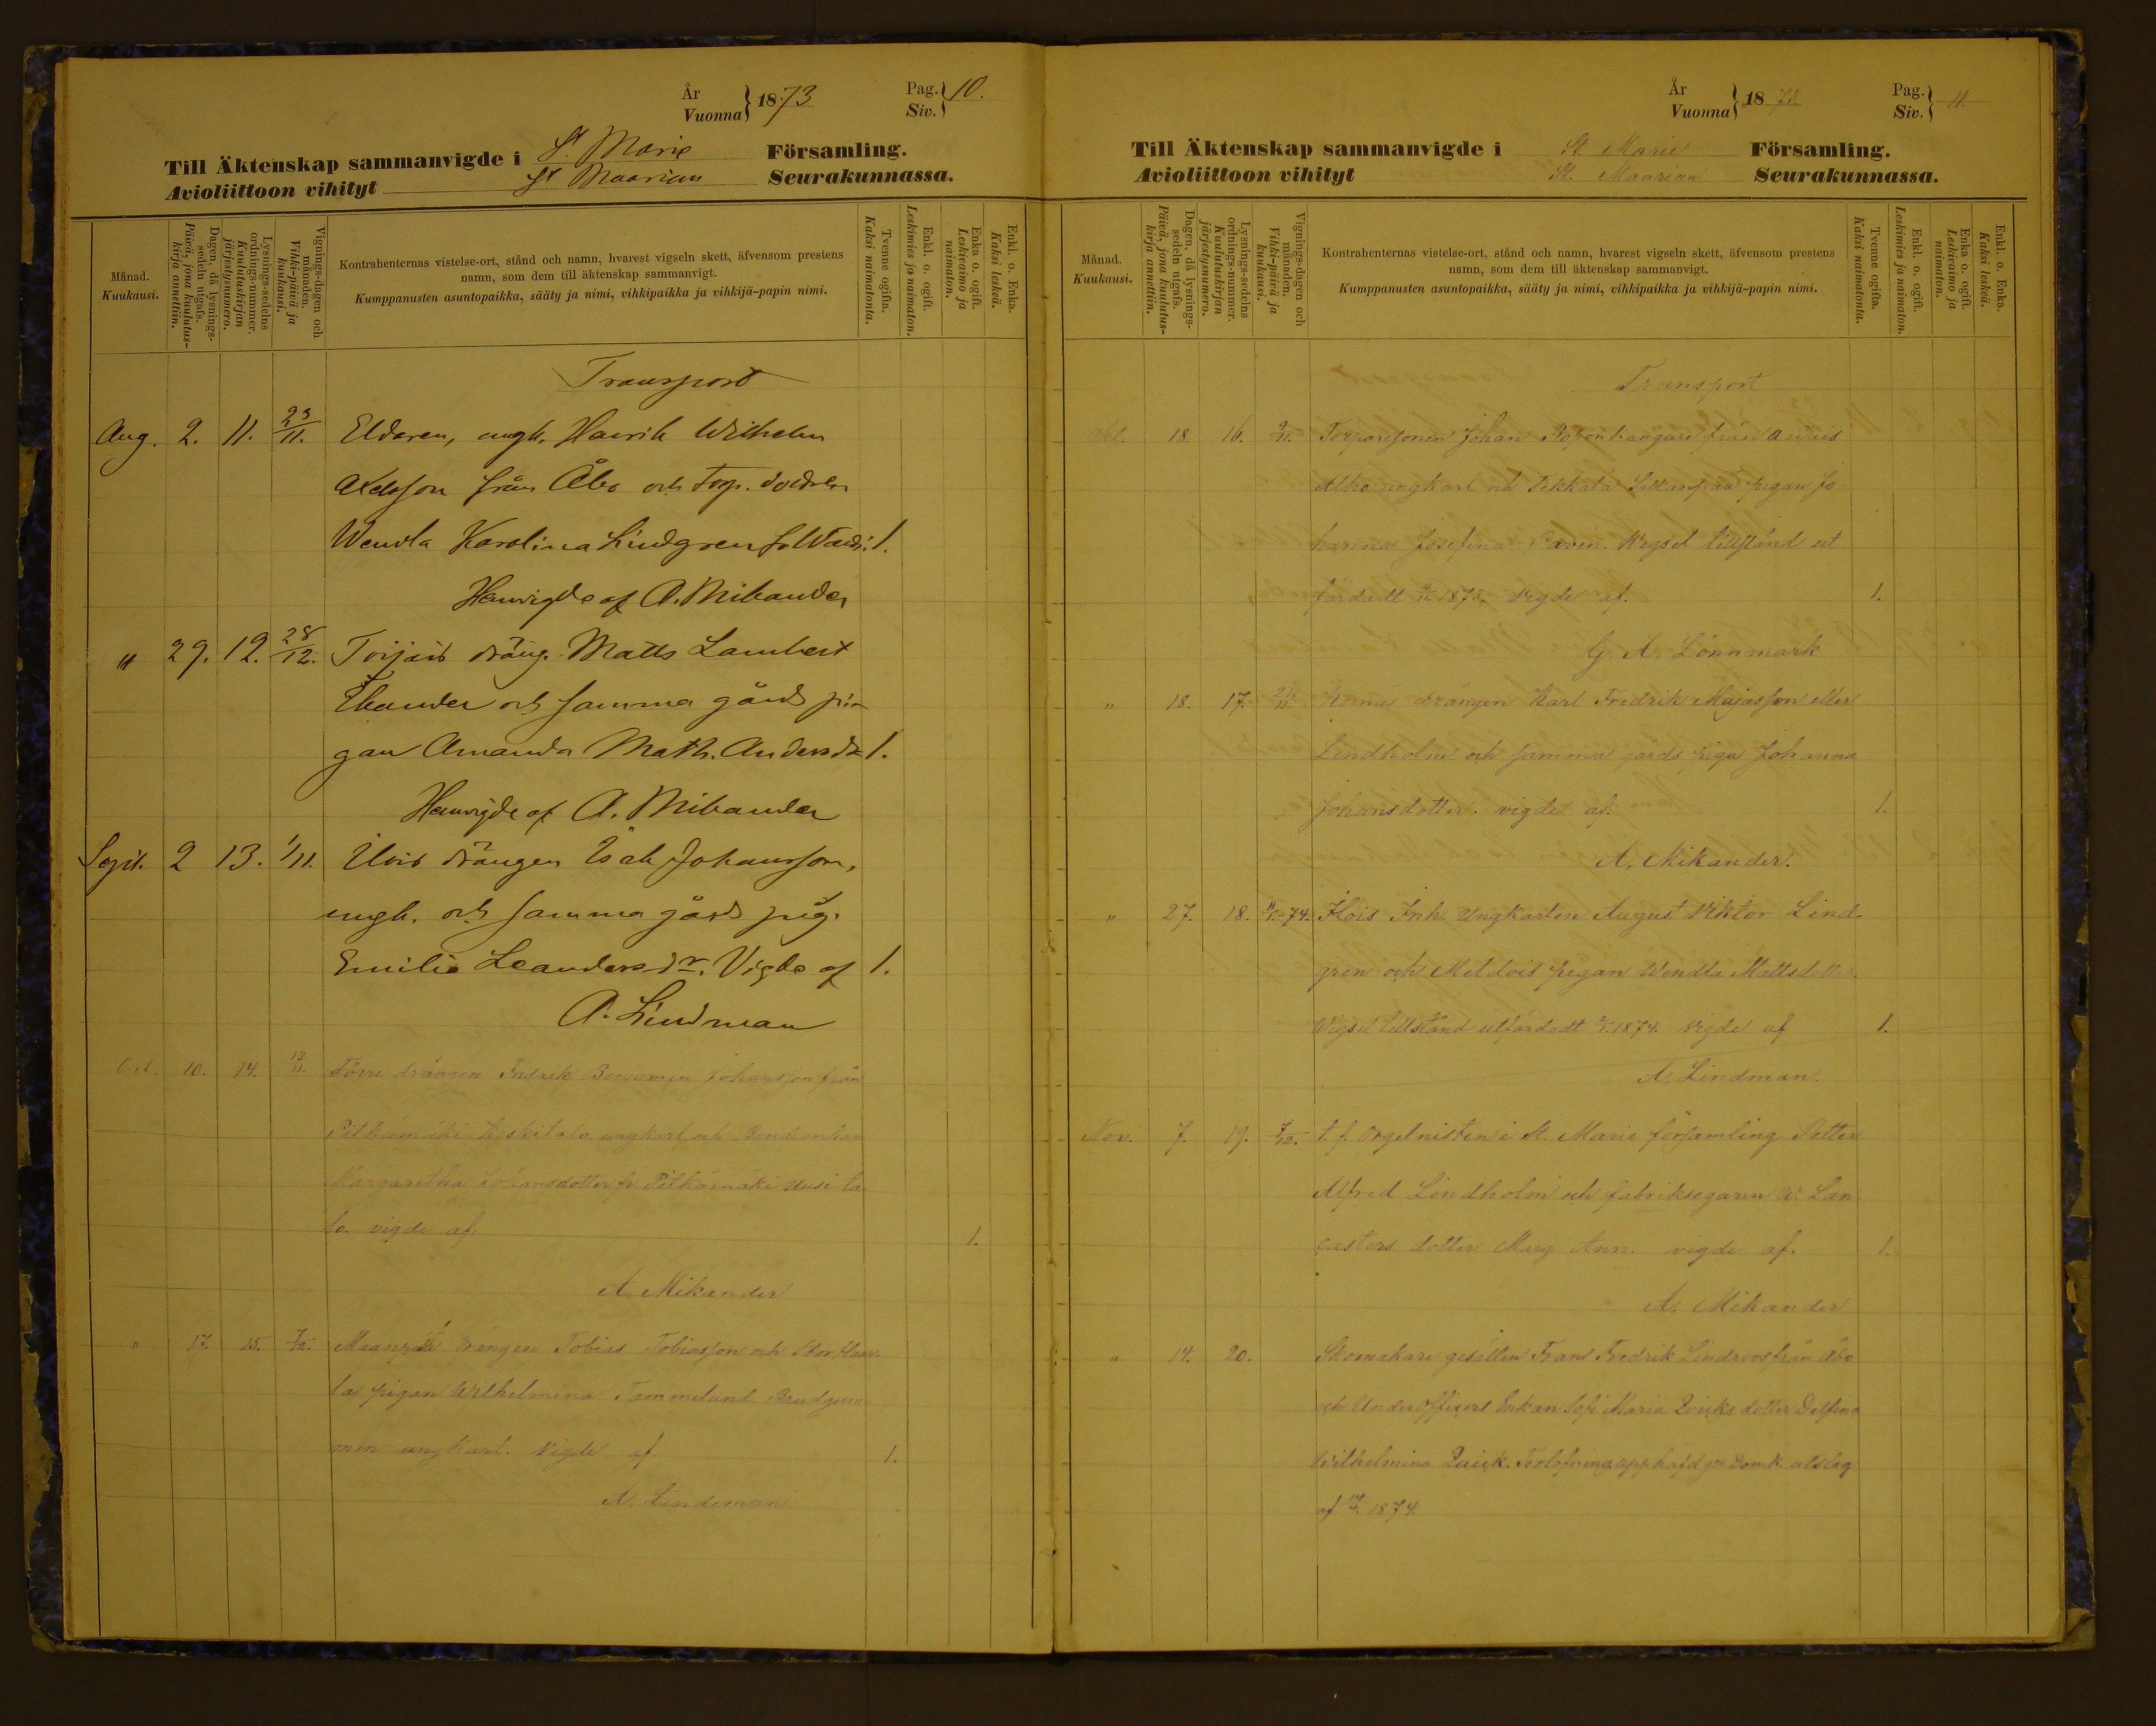 År
Vuonna } 1873
Pag.
Siv. } 10.
Till Äktenskap sammanvigde i St Marie Församling.
Avioliittoon vihityt St Maarian Seurakunnassa.
Månad.
Kuukausi.
Dagen, då lysnings-
sedeln utgafs.
Päivä, jona kuulutus-
kirja annettiin.
Lysnings-sedelns
ordnings-nummer.
Kuulutuskirjan
järjestysnumero.
Vignings-dagen och
månaden.
Vihki-päivä ja
kuukausi.
Kontrahenternas vistelse-ort, stånd och namn, hvarest vigseln skett, äfvensom prestens
namn, som dem till äktenskap sammanvigt.
Kumppanusten asuntopaikka, sääty ja nimi, vihkipaikka ja vihkijä-papin nimi.
Tvenne ogifta.
Kaksi naimatonta.
Enkl. o. ogift.
Leskimies ja naimaton.
Enka o. ogift.
Leskivaimo ja
naimaton.
Enkl. o. Enka.
Kaksi leskeä.
Transport
Aug. 2. 11. 23/11. Eldaren, ungk. Henrik Wilhelm
Axelsson från Åbo och torp. dottren
Wendla Karolina Lindgren 1.
Hemvigde af A. Mikander
" 29. 12. 28/12. Toijais dräng. Matts Lambert
och samma gårds pi-
gan Amanda Math. Andersdr 1.
Hemvigde af A. Mikander
Sept. 2 13. 1/11. drängen Isak Johansson,
ungk. och samma gårds pig.
Emilia Leandersdr. Vigde af 1.
A. Lindman
Oct. 10. 14. 13/11. drängen Fredrik Benjamin Johansson från
Pitkämäki ungkarl och
Margaretha Johansdotter fr. Pitkämäki Uusi ta-
lo. vigde af 1.
A. Mikander
" 17. 15. 7/12. drängen Tobias Tobiasson och
la pigan Wilhelmina Tammelund Brudgum-
men ungkarl. Vigde af 1.
A. Lindeman
År
Vuonna } 1873
Pag.
Siv. } 11
Till Äktenskap sammanvigde i St. Marie Församling.
Avioliittoon vihityt St. Maarian Seurakunnassa.
Månad.
Kuukausi.
Dagen, då lysnings-
sedeln utgafs.
Päivä, jona kuulutus-
kirja annettiin.
Lysnings-sedelns
ordnings-nummer.
Kuulutuskirjan
järjestysnumero.
Vignings-dagen och
månaden.
Vihki-päivä ja
kuukausi.
Kontrahenternas vistelse-ort, stånd och namn, hvarest vigseln skett, äfvensom prestens
namn, som dem till äktenskap sammanvigt.
Kumppanusten asuntopaikka, sääty ja nimi, vihkipaikka ja vihkijä-papin nimi.
Tvenne ogifta.
Kaksi naimatonta.
Enkl. o. ogift.
Leskimies ja naimaton.
Enka o. ogift.
Leskivaimo ja
naimaton.
Enkl. o. Enka.
Kaksi leskeä.
Transport
Okt. 18. 16. Torparesonen Johan från
Alho ungkarl och pigan Jo-
Josefina Vigsel tillstånd ut
färdadt 1873. vigde af. 1.
G. A. Lönnmark
" 18. 17. drängen Karl Fredrik Majasson eller
Lindholm och samma gårds piga Johanna
Johansdotter. vigde af. 1.
A. Mikander.
" 27. 18. Inh. Ungkarlen August Viktor Lind-
gren och Meldois pigan Wendla Mattsdotter.
Vigsel tillstånd utfärdadt 1874. vigde af 1.
A. Lindman.
Nov. 7. 19. 7/12. t. f. Orgelnisten i St. Marie församling Petter
Alfred Lindholm och fabriksegaren W. Lan-
casters dotter Mary Ann. vigde af. 1.
A. Mikander
" 14. 20. Skomakare gesällen Frans Fredrik Lindroos från Åbo
och Under Officers Enkan Sofi Maria dotter Delfina
Wilhelmina Quick. Domk. utslag
af 1874.